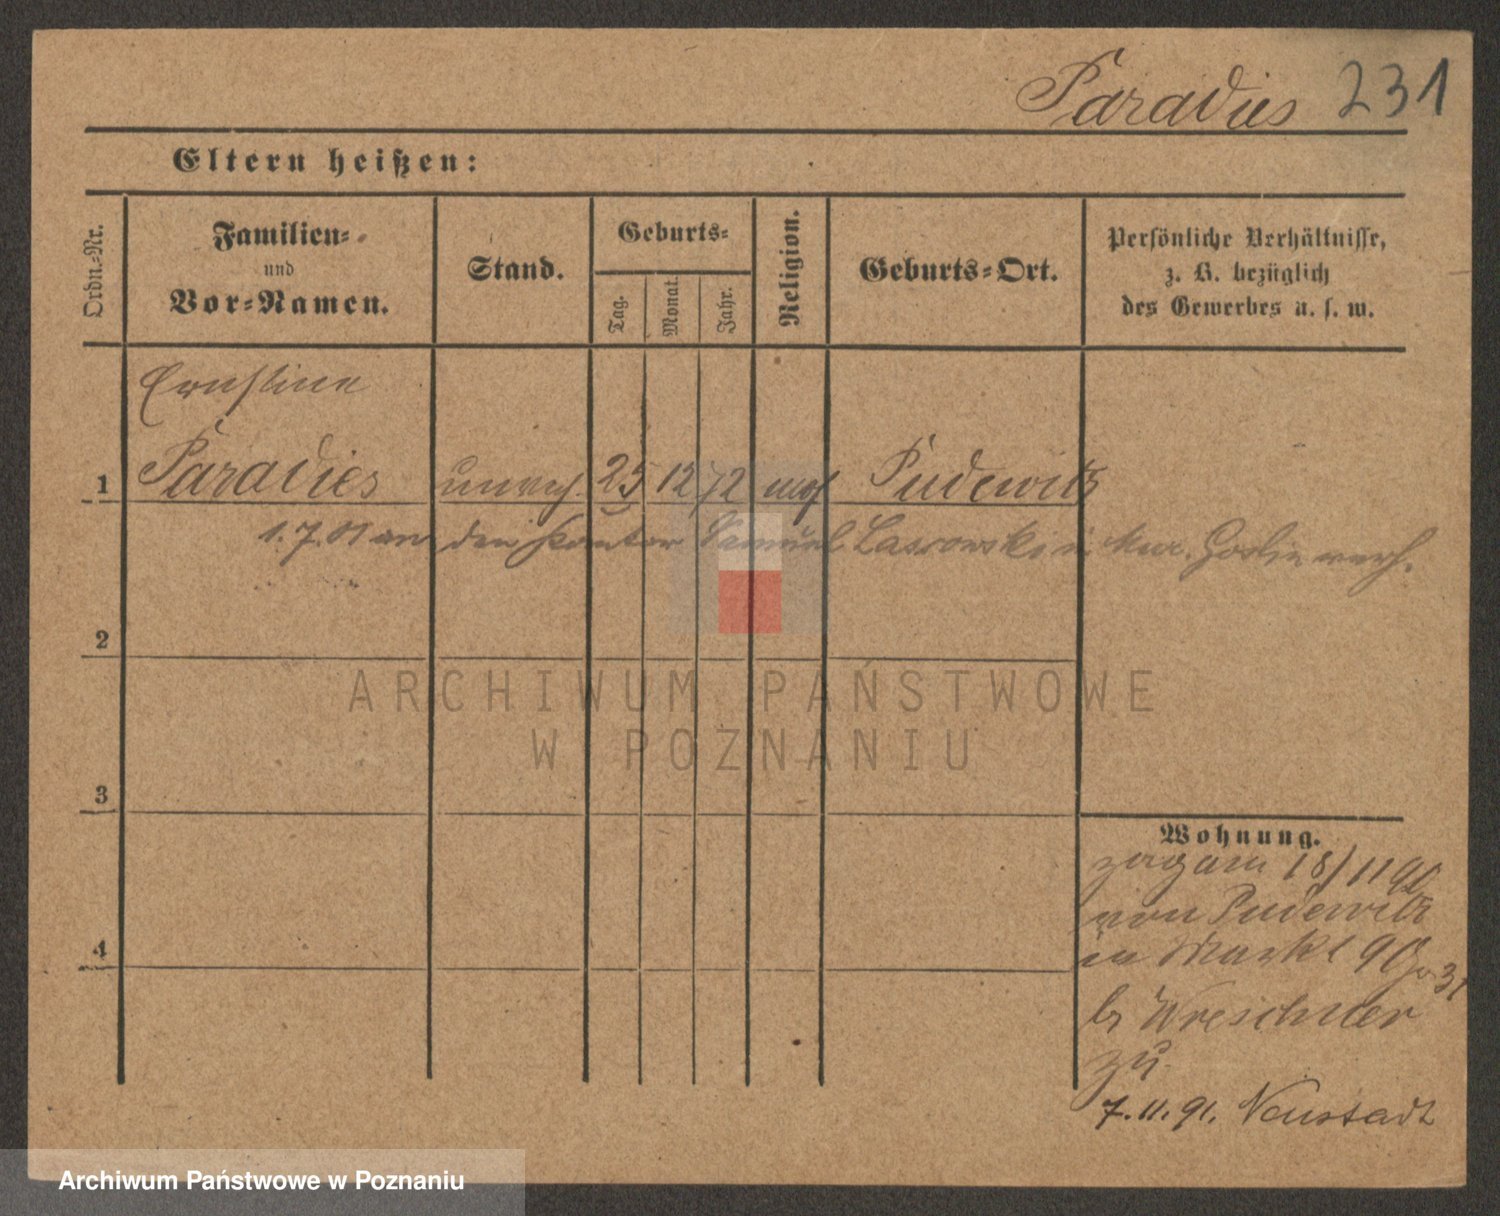 Paradies 231
Eltern heißen:
Ordn.-Nr.
Familien-
und
Vor-Namen.
Stand.
Geburts-
Tag.
Monat.
Jahr.
Religion.
Geburts-Ort.
Persönliche Verhältnisse,
z. B. bezüglich
des Gewerbes u. s. w.
Ernstine
1 Paradies unverh. 25 12 72 mos Pudewitz
1.7.01 an den Kantor Samuel Lassowski in Mur. Goslin verh.
2
3
4
Wohnung.
zog am 18/11
von Pudewitz
in Markt 90
b Wreschner
zu
7.11.91. Neustadt
ARCHIWUM PAŃSTWOWE
W POZNANIU
Archiwum Państwowe w Poznaniu